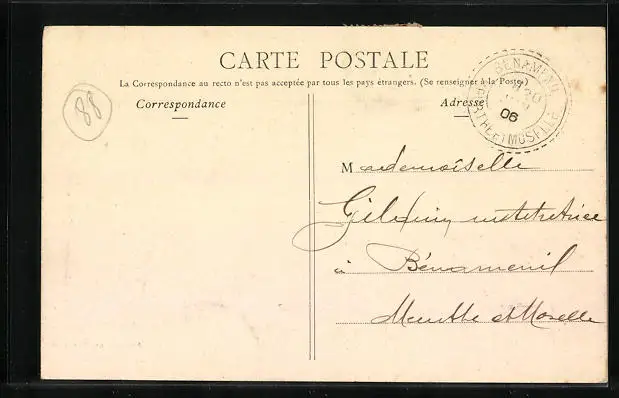 CARTE POSTALE
La Correspondance au recto n'est pas acceptée par tous les pays étrangers. (Se renseigner à la Poste)
Correspondance
Adresse
BENAMENIL
06
MTHE ET MOSELLE
88
Mademoiselle
institutrice
à Bénaménil
Meurthe et Moselle